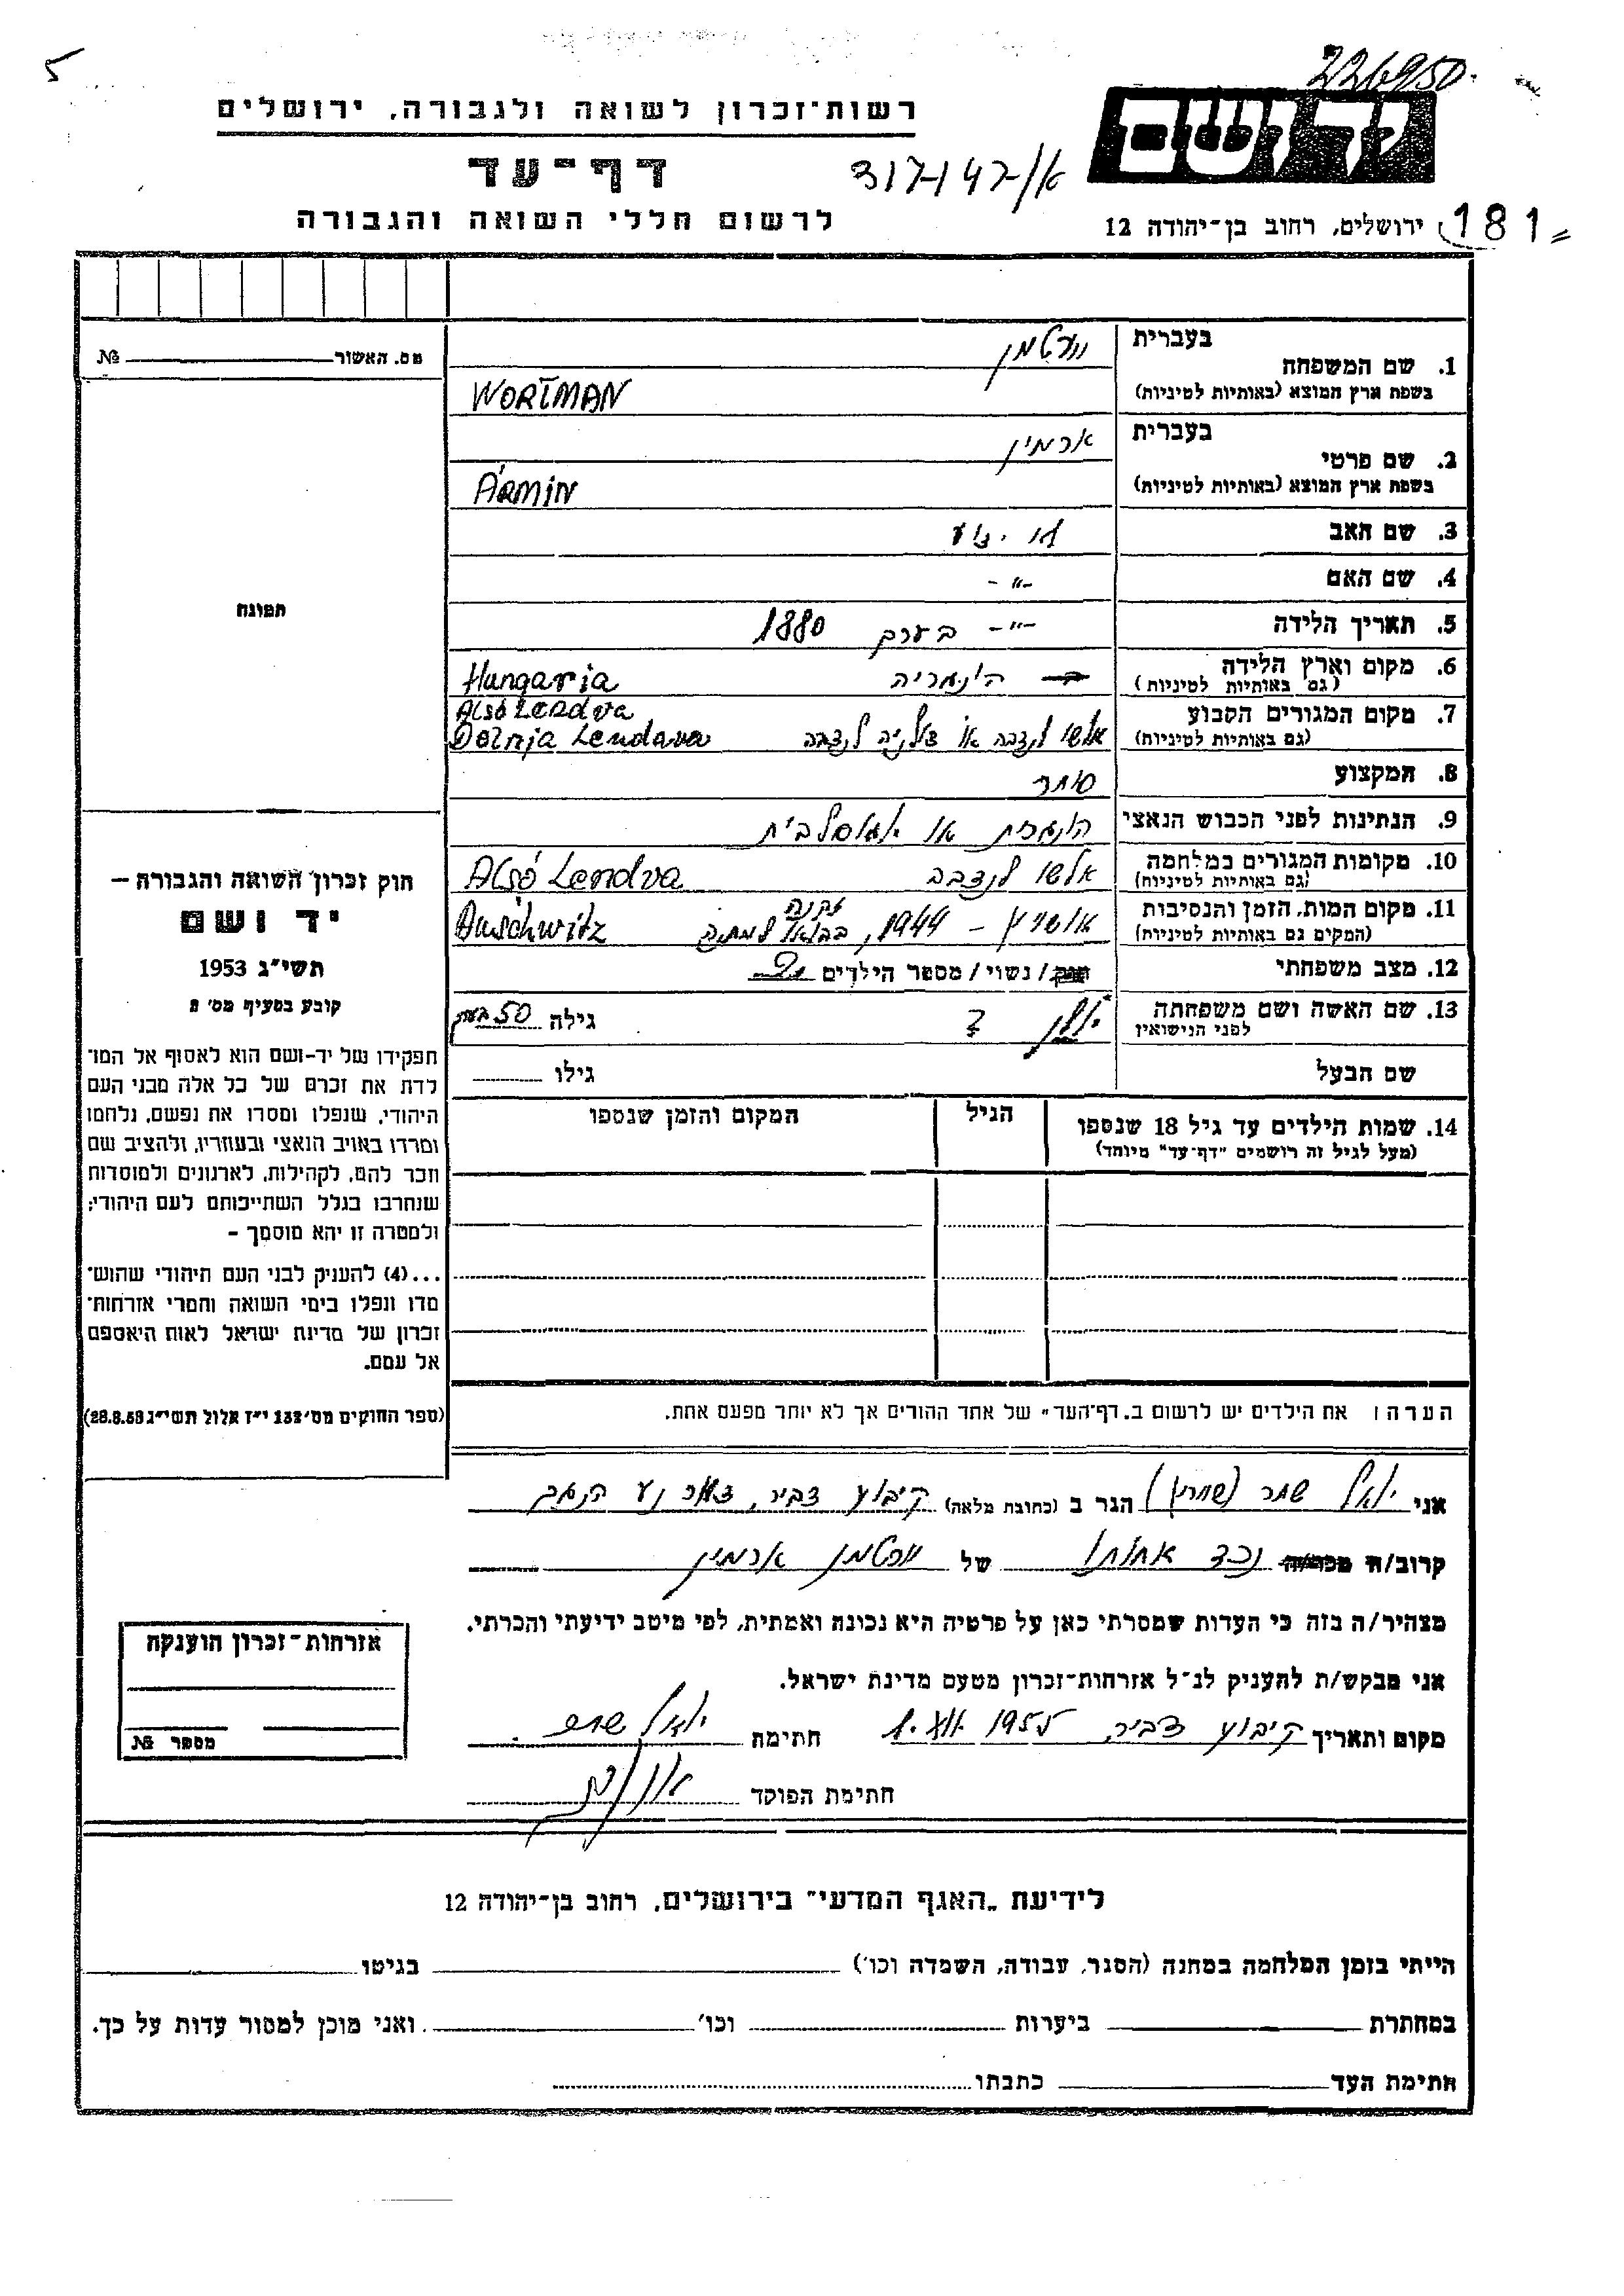 226950
רשות־זכרון לשואה ולגבורה, ירושלים
יד ושם
דף־עד
א/317-147
לרשום חללי השואה והגבורה
ירושלים, רחוב בן־יהודה 12
181
מס. האשור № 
1. שם המשפחה
בעברית וורטמן
בשפת ארץ המוצא (באותיות לטיניות) WORTMAN
2. שם פרטי
בעברית ארמין
בשפת ארץ המוצא (באותיות לטיניות) ÁRMIN
3. שם האב לא ידוע
4. שם האם -"-
5. תאריך הלידה -"- בערך 1880
6. מקום וארץ הלידה (גם באותיות לטיניות) הונגריה Hungaria
7. מקום המגורים הקבוע Alsó Lendva
(גם באותיות לטיניות) אלשו לנדבה או דולניה לנדבה Dolnja Lendava
8. המקצוע סוחר
9. הנתינות לפני הכבוש הנאצי הונגרית או יוגוסלבית
10. מקומות המגורים במלחמה (גם באותיות לטיניות) אלשו לנדבה Alsó Lendva
11. מקום המות, הזמן והנסיבות (המקום גם באותיות לטיניות) אושויץ – 1944, Auschwitz
12. מצב משפחתי רווק/נשוי/מספר הילדים 2
13. שם האשה ושם משפחתה לפני הנישואין ? גילה 50 בערך
שם הבעל גילו
14. שמות הילדים עד גיל 18 שנספו
(מעל לגיל זה רושמים "דף־עד" מיוחד)
הגיל
המקום והזמן שנספו
הערה: את הילדים יש לרשום ב„דף־העד" של אחד ההורים אך לא יותר מפעם אחת.
תמונה
חוק זכרון השואה והגבורה –
יד ושם
תשי"ג 1953
קובע בסעיף מס' 2
תפקידו של יד-ושם הוא לאסוף אל המו־
לדת את זכרם של כל אלה מבני העם
היהודי, שנפלו ומסרו את נפשם, נלחמו
ומרדו באויב הנאצי ובעוזריו, ולהציב שם
וזכר להם, לקהילות, לארגונים ולמוסדות
שנחרבו בגלל השתייכותם לעם היהודי;
ולמטרה זו יהא מוסמך –
...(4) להעניק לבני העם היהודי שהוש־
מדו ונפלו בימי השואה והמרי אזרחות־
זכרון של מדינת ישראל לאות היאספם
אל עמם.
(ספר החוקים מס' 132 י"ז אלול תשי"ג 28.8.53)
אני יואל שחר (שוורץ) הגר ב (כתובת מלאה) קיבוץ דביר, דואר נע הנגב
קרוב/ה מכר/ה נכד אחותו של וורטמן ארמין
מצהיר/ה בזה כי העדות שמסרתי כאן על פרטיה היא נכונה ואמתית, לפי מיטב ידיעתי והכרתי.
אני מבקש/ת להעניק לנ"ל אזרחות־זכרון מטעם מדינת ישראל.
מקום ותאריך קיבוץ דביר, 1955 חתימת יואל שחר
חתימת הפוקד
אזרחות־זכרון הוענקה
מספר №
לידיעת „האגף המדעי" בירושלים, רחוב בן־יהודה 12
הייתי בזמן המלחמה במחנה (הסגר, עבודה, השמדה וכו') בגיטו
במחתרת ביערות וכו' ואני מוכן למסור עדות על כך.
חתימת העד כתבתו